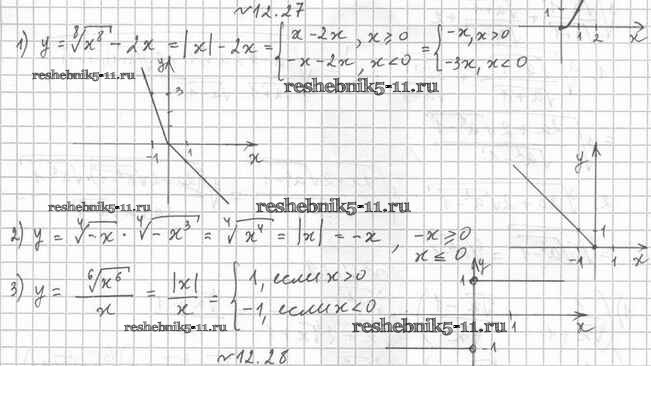 №12.27
1) y = ⁸√x⁸ - 2x = |x| - 2x = { x - 2x, x ≥ 0 ; -x - 2x, x < 0 = { -x, x > 0 ; -3x, x < 0
reshebnik5-11.ru
reshebnik5-11.ru
y
3
-1 1 x
1
1 2 x
reshebnik5-11.ru
reshebnik5-11.ru
y
1
-1 1 x
2) y = ⁴√-x · ⁴√-x³ = ⁴√x⁴ = |x| = -x, -x ≥ 0
x ≤ 0
3) y = ⁶√x⁶ / x = |x| / x = { 1, если x > 0 ; -1, если x < 0
reshebnik5-11.ru
reshebnik5-11.ru
y
1
1 x
-1
№12.28